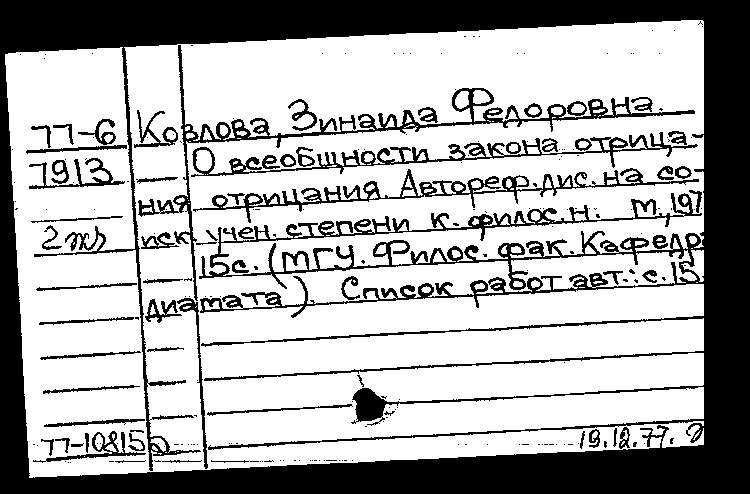 77-6 Козлова, Зинаида Федоровна.
7913 О всеобщности закона отрица-
ния отрицания. Автореф. дис. на со-
2 иск. учен. степени к. филос. н. М., 197
15с. (МГУ. Филос. фак. Кафедра
диамата). Список работ авт.: с. 15.
77-10815 19.12.77.